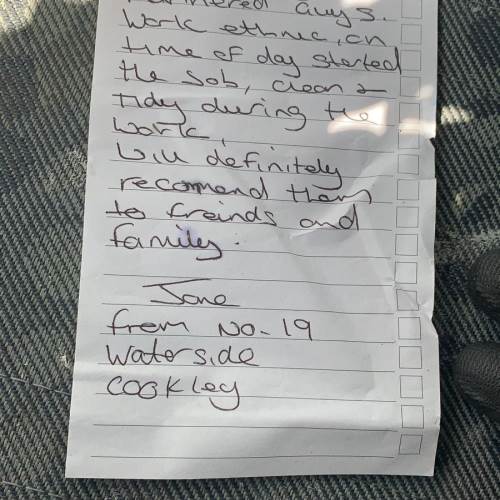 guys.
work ethnic, on
time of day started
the Job, clean &
tidy during the
work,
will definitely
recommend them
to freinds and
family.
Jane
from NO-19
Waterside
COOKley